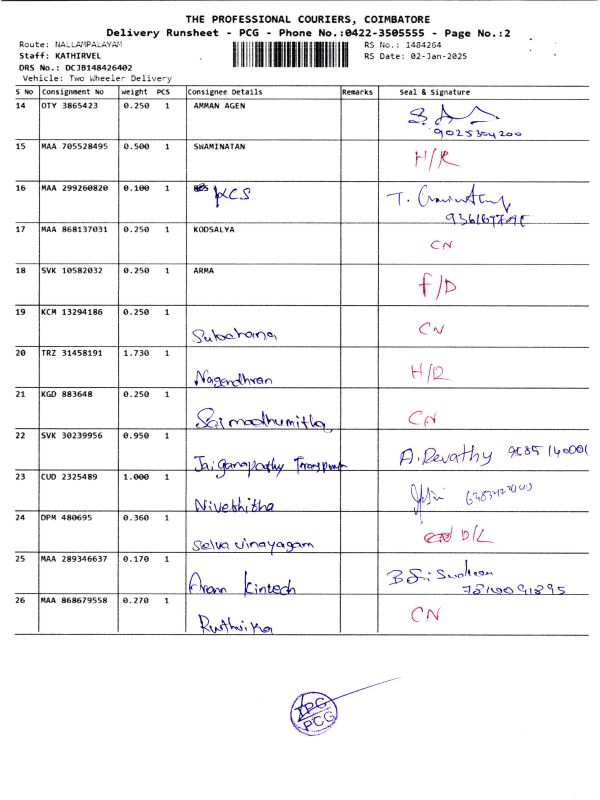 THE PROFESSIONAL COURIERS, COIMBATORE
Delivery Runsheet - PCG - Phone No.:0422-3505555 - Page No.:2
Route: NALLAMPALAYAM RS No.: 1484264
Staff: KATHIRVEL RS Date: 02-Jan-2025
DRS No.: DCJB148426402
Vehicle: Two Wheeler Delivery
S No Consignment No Weight PCS Consignee Details Remarks Seal & Signature
14 OTY 3865423 0.250 1 AMMAN AGEN
9025304200
15 MAA 705528495 0.500 1 SWAMINATAN H/R
16 MAA 299260820 0.100 1 KCS
17 MAA 868137031 0.250 1 KODSALYA CN
18 SVK 10582032 0.250 1 ARMA F/D
19 KCM 13294186 0.250 1 Sulochana CN
20 TRZ 31458191 1.730 1 Nagendhran H/R
21 KGD 883648 0.250 1 Saimadhumitha CN
22 SVK 30239956 0.950 1 Jaiganapathy Transport A. Revathy
23 CUD 2325489 1.000 1 Nivethitha
24 DPM 480695 0.360 1 Selva vinayagam D/L
25 MAA 289346637 0.170 1 Aram Kintech
26 MAA 868679558 0.270 1 Ruthvika CN
TPC
PCG